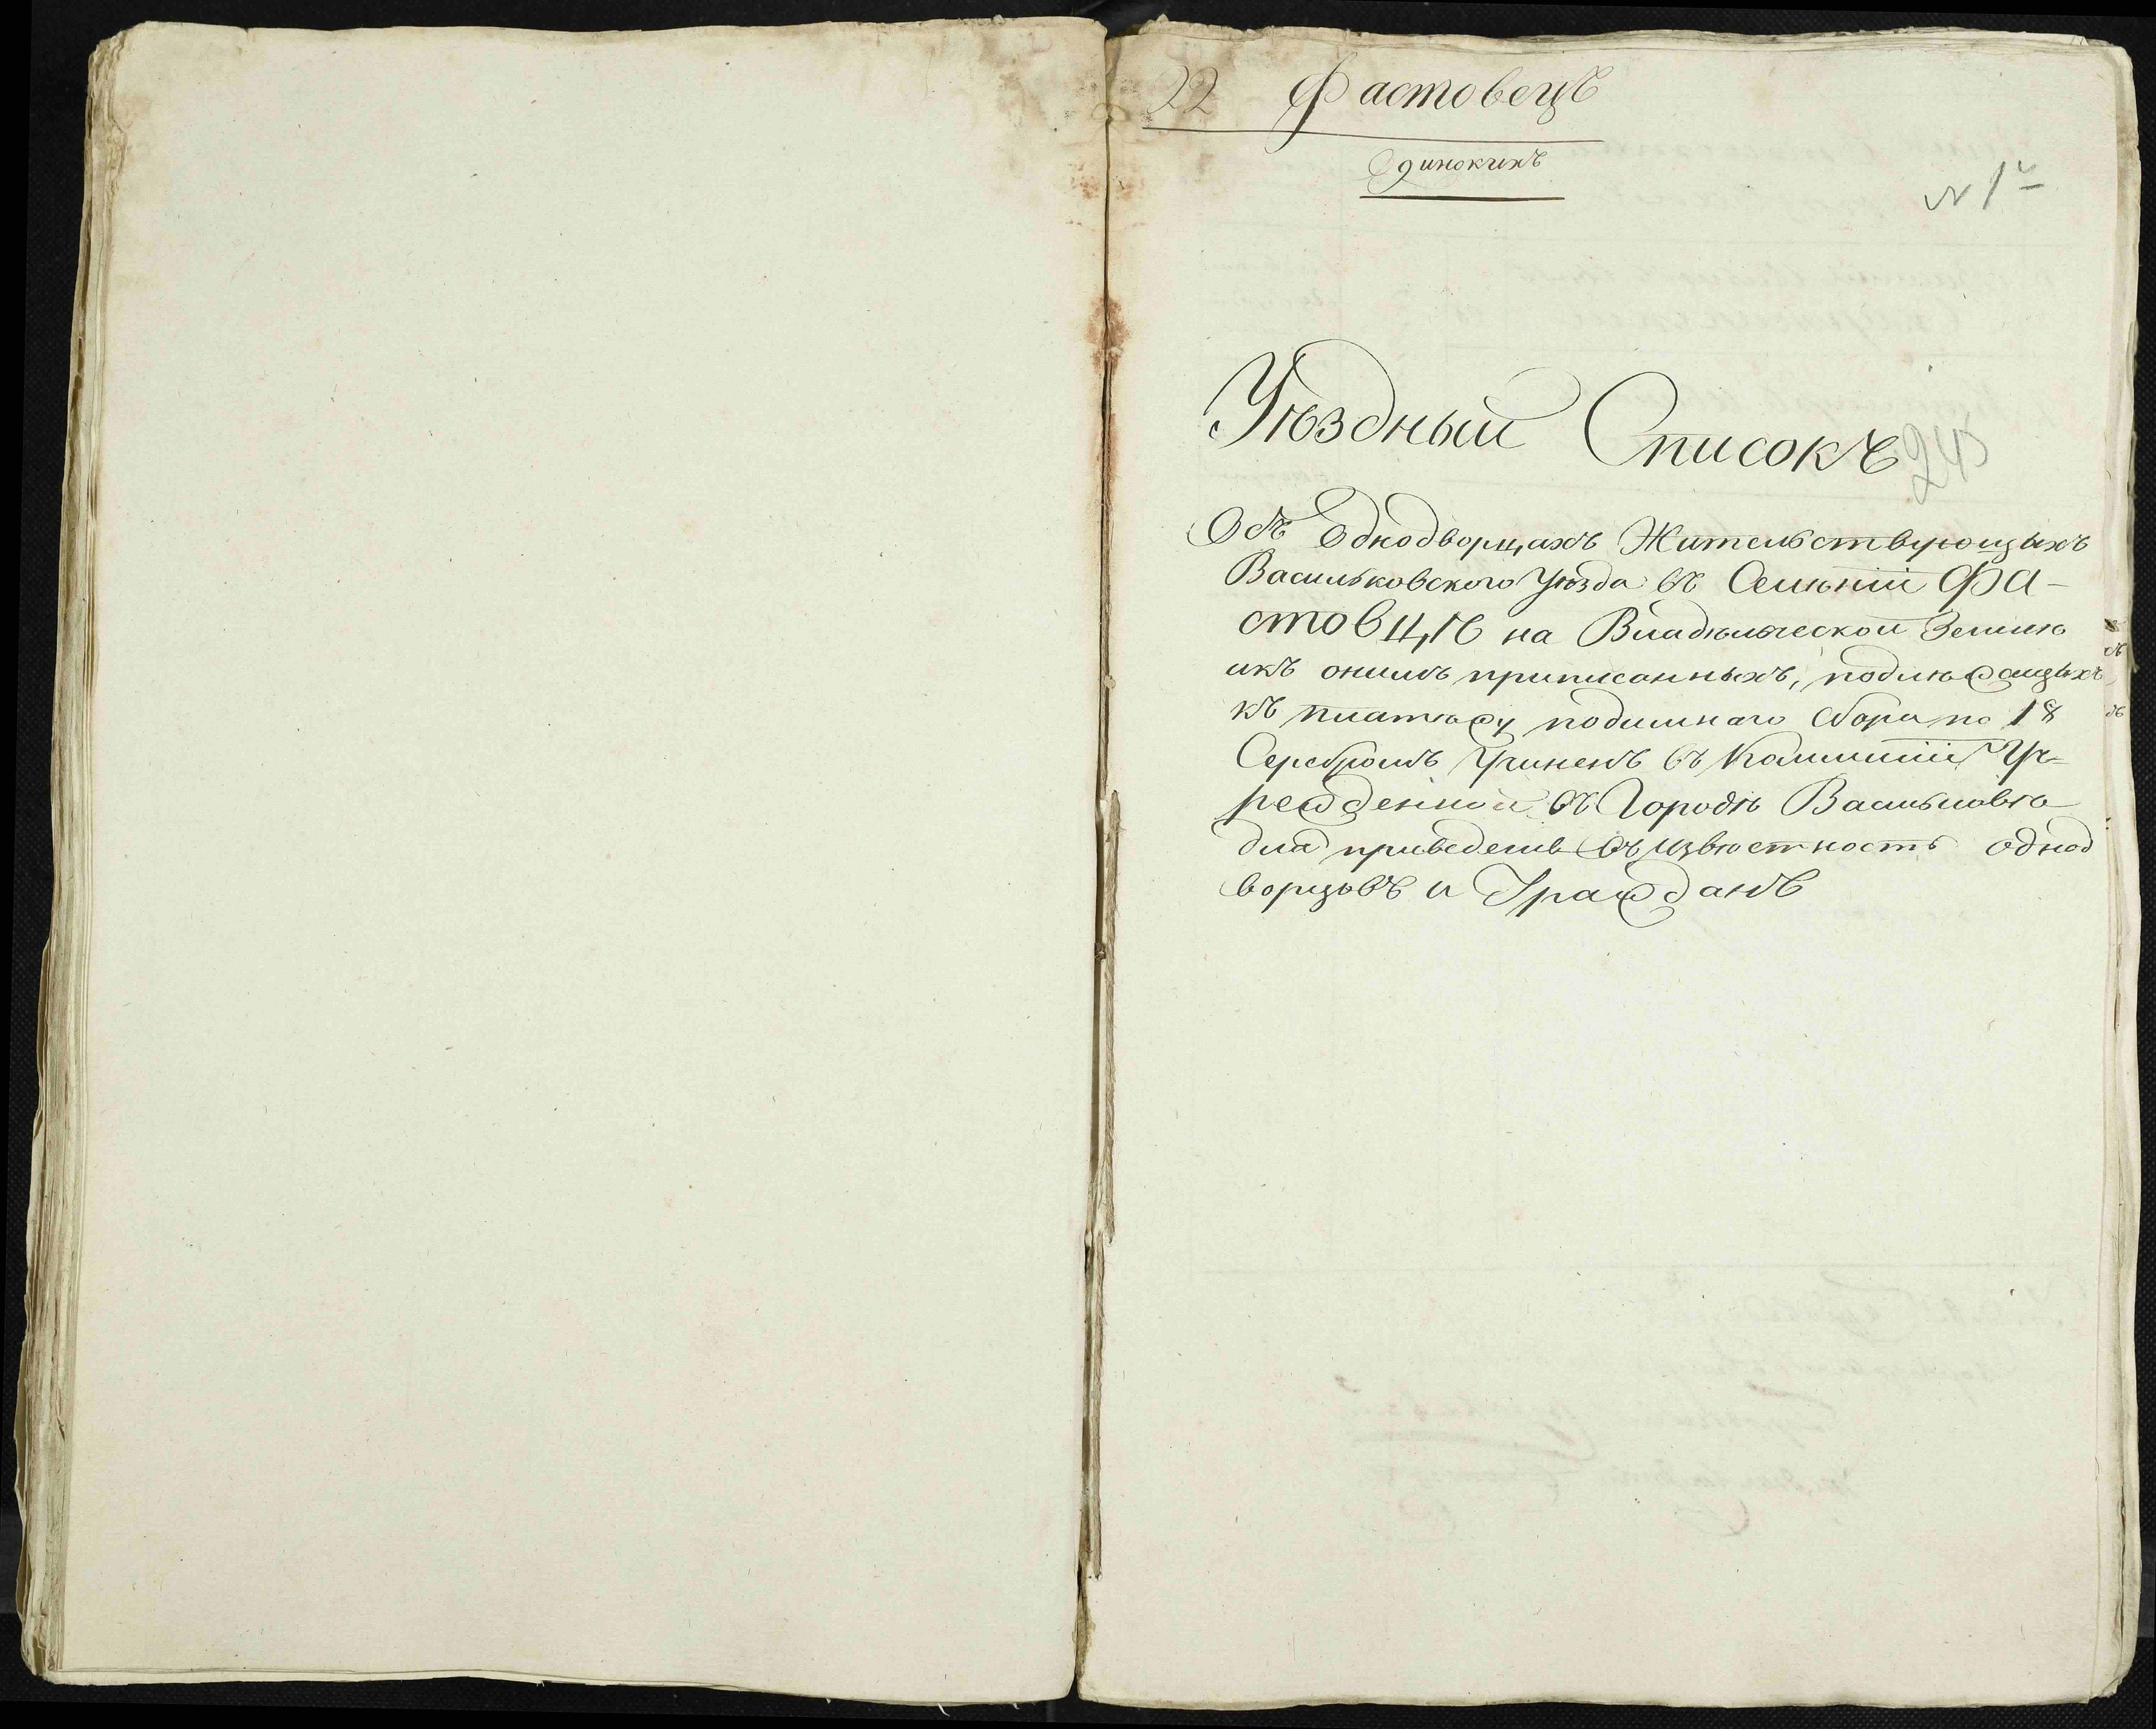 22 Фастовецъ
Одинокихъ
№ 1й
Уѣздный Списокъ
245
Объ Однодворцахъ Жительствующыхъ
Васильковского Уѣзда въ Селѣніи Фа-
стовцѣ на Владѣльческой Землѣ
икъ онимъ приписанныхъ, подлѣжащыхъ
къ платѣжу подымнаго сбора по 1 8
Серебромъ Учиненъ въ Коммиссіи Уч-
режденной въ Городѣ Васильковѣ
для приведенія въ извѣстность однод
ворцовъ и Гражданъ